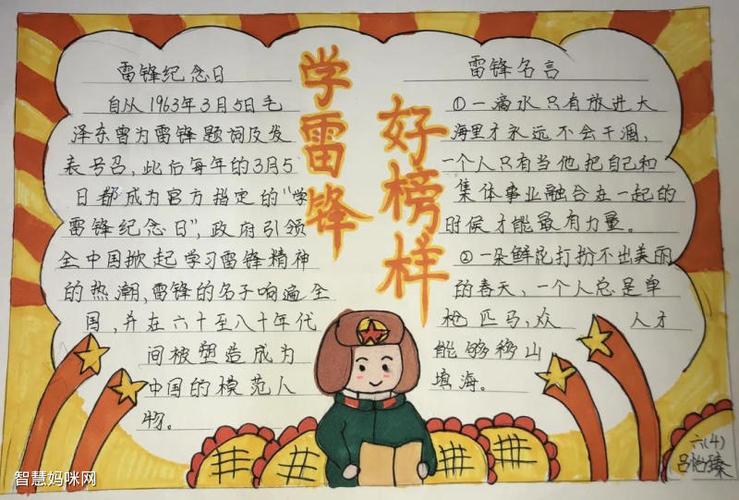 学雷锋
好榜样
雷锋纪念日
自从1963年3月5日毛
泽东曾为雷锋题词及发
表号召,此后每年的3月5
日都成为官方指定的“学
雷锋纪念日”,政府引领
全中国掀起学习雷锋精神
的热潮,雷锋的名子响遍全
国,并在六十至八十年代
间被塑造成为
中国的模范人
物。
雷锋名言
①一滴水只有放进大
海里才永远不会干涸,
一个人只有当他把自己和
集体事业融合在一起的
时候才能最有力量。
②一朵鲜花打扮不出美丽
的春天,一个人总是单
枪匹马,众人才
能够移山
填海。
六(4)
吕怡臻
智慧妈咪网